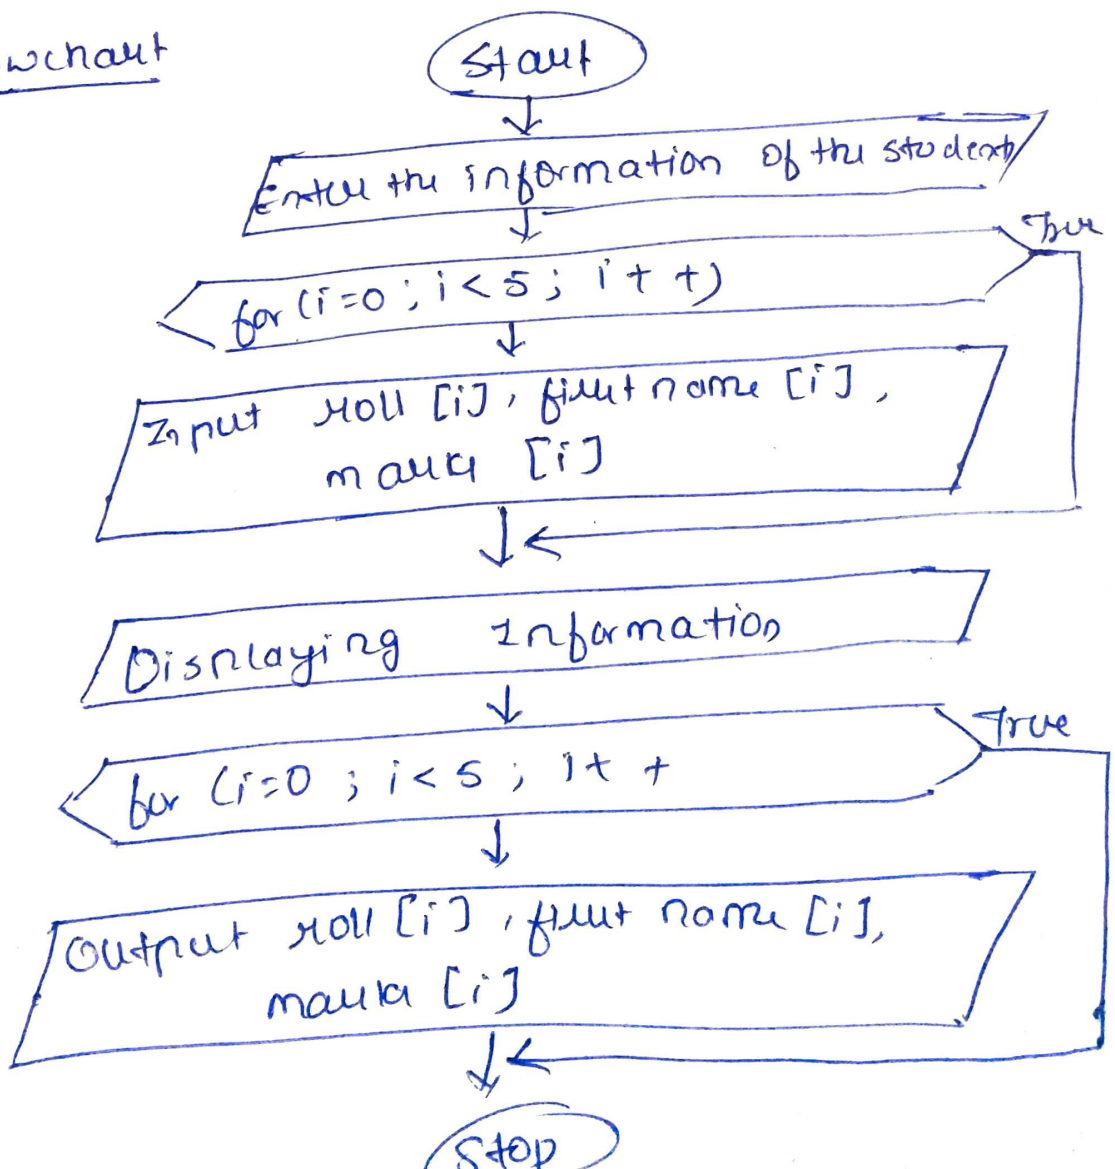 wchart
Start
Enter the information of the student
for (i=0 ; i<5 ; i++)
True
Input roll [i], first name [i],
marks [i]
Displaying Information
for (i=0 ; i<5 ; i++
True
Output roll [i], first name [i],
marks [i]
Stop